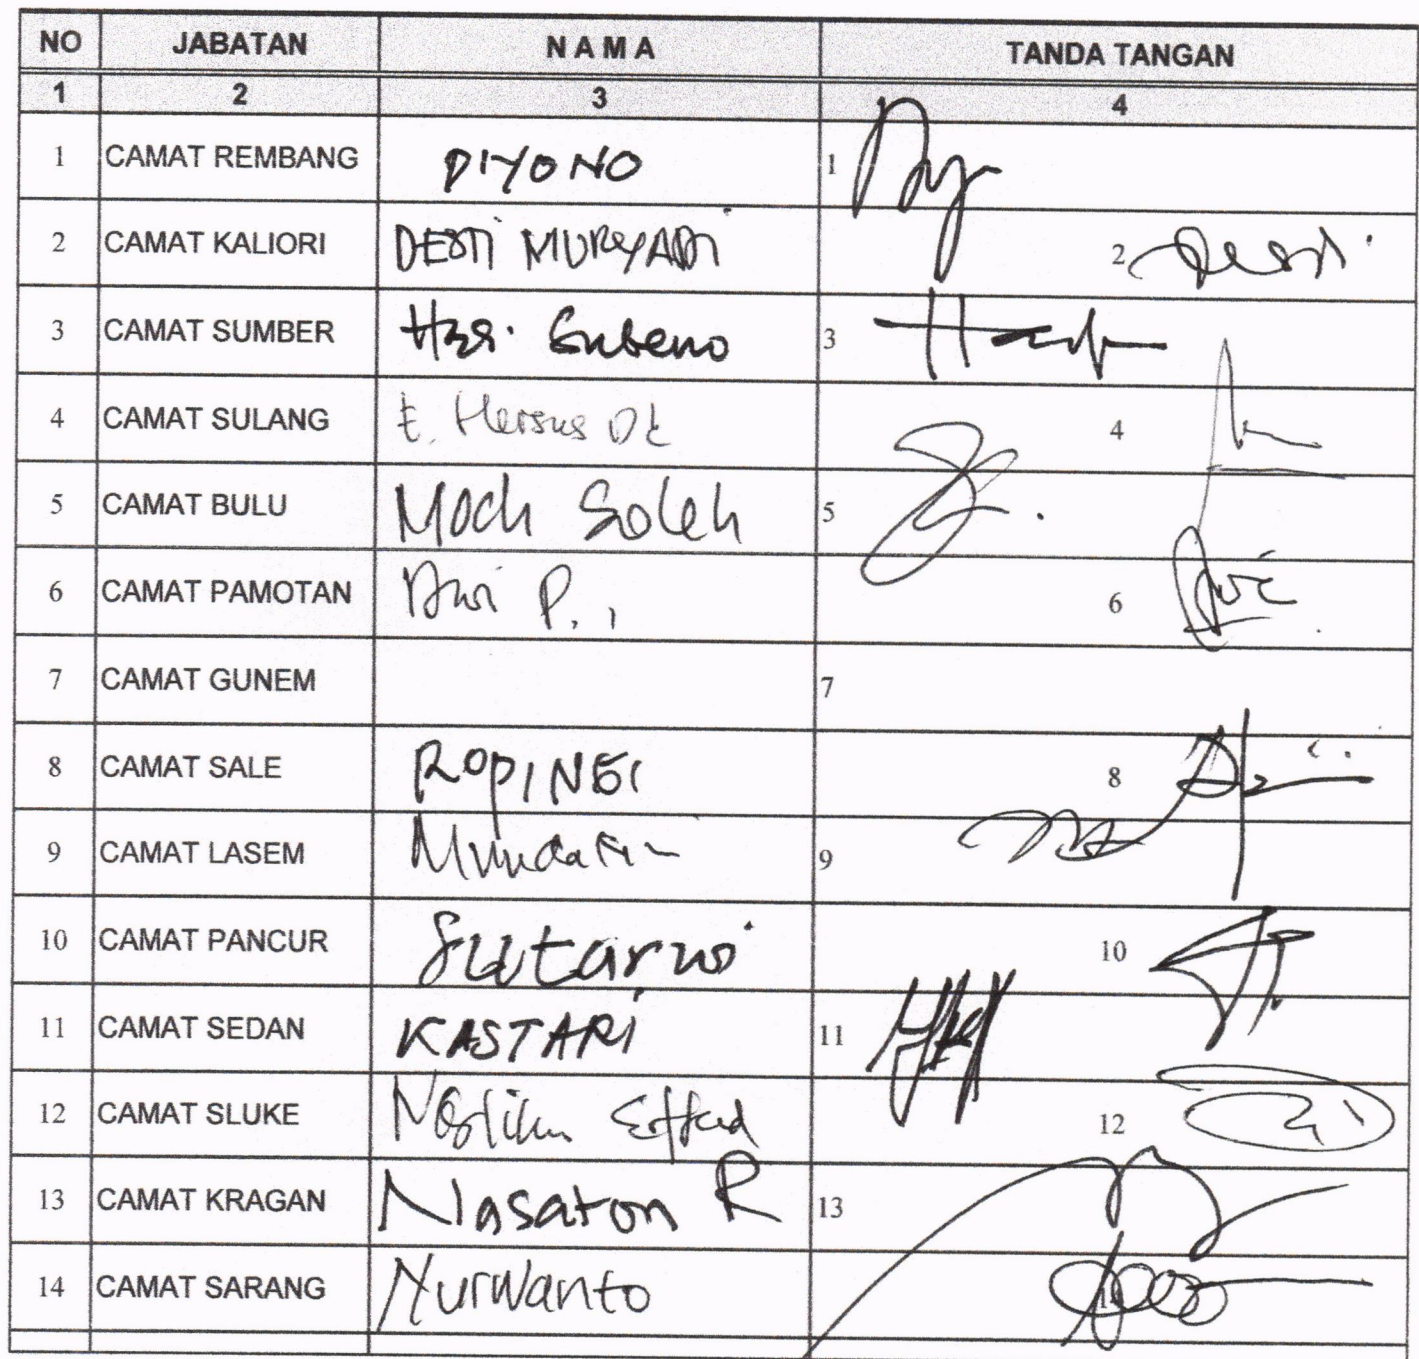 NO JABATAN N A M A TANDA TANGAN
1 2 3 4
1 CAMAT REMBANG DIYONO 1
2 CAMAT KALIORI DESTI MURYADI 2
3 CAMAT SUMBER Hari Subeno 3
4 CAMAT SULANG 4
5 CAMAT BULU Moch Soleh 5
6 CAMAT PAMOTAN Dwi P. 6
7 CAMAT GUNEM 7
8 CAMAT SALE 8
9 CAMAT LASEM 9
10 CAMAT PANCUR Sutarwi 10
11 CAMAT SEDAN KASTARI 11
12 CAMAT SLUKE 12
13 CAMAT KRAGAN Nasaton R 13
14 CAMAT SARANG Nurwanto 14